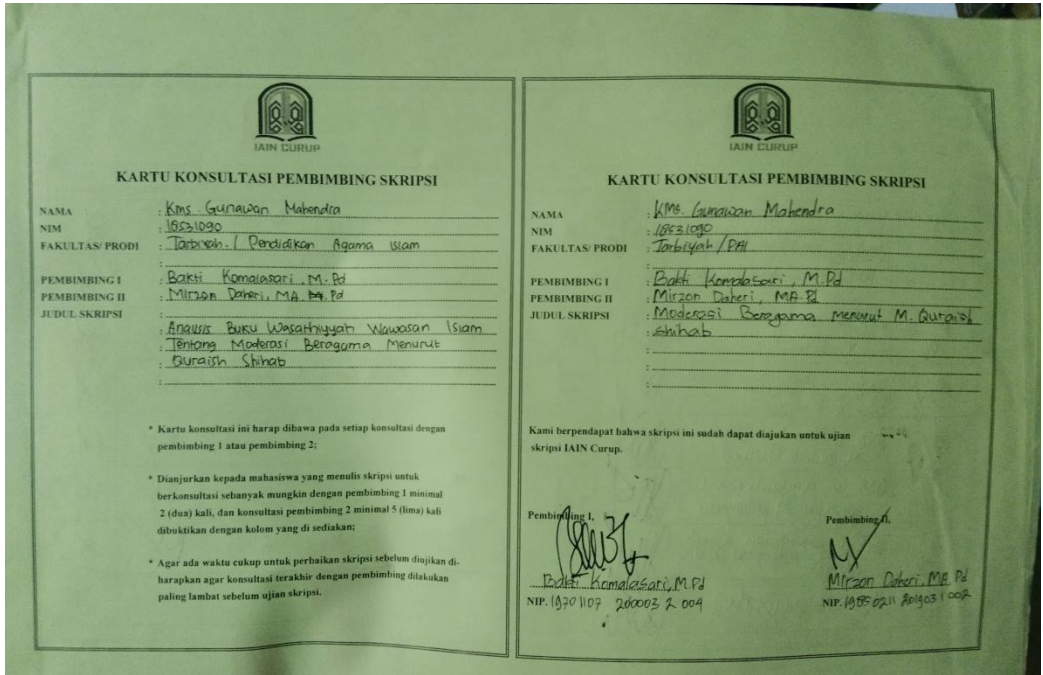 IAIN CURUP
KARTU KONSULTASI PEMBIMBING SKRIPSI
NAMA : Kms. Gunawan Mahendra
NIM : 18531090
FAKULTAS/ PRODI : Tarbiyah / Pendidikan Agama Islam
:
PEMBIMBING I : Bakti Komalasari, M.Pd
PEMBIMBING II : Mirzon Daheri, MA. Pd
JUDUL SKRIPSI :
: Analisis Buku Wasathiyyah Wawasan Islam
: Tentang Moderasi Beragama Menurut
: Quraish Shihab
:
* Kartu konsultasi ini harap dibawa pada setiap konsultasi dengan
pembimbing 1 atau pembimbing 2;
* Dianjurkan kepada mahasiswa yang menulis skripsi untuk
berkonsultasi sebanyak mungkin dengan pembimbing 1 minimal
2 (dua) kali, dan konsultasi pembimbing 2 minimal 5 (lima) kali
dibuktikan dengan kolom yang di sediakan;
* Agar ada waktu cukup untuk perbaikan skripsi sebelum diujikan di-
harapkan agar konsultasi terakhir dengan pembimbing dilakukan
paling lambat sebelum ujian skripsi.
IAIN CURUP
KARTU KONSULTASI PEMBIMBING SKRIPSI
NAMA : KMS. Gunawan Mahendra
NIM : 18531090
FAKULTAS/ PRODI : Tarbiyah / PAI
:
PEMBIMBING I : Bakti Komalasari, M.Pd
PEMBIMBING II : Mirzon Daheri, MA.Pd
JUDUL SKRIPSI : Moderasi Beragama menurut M. Quraish
: Shihab
:
:
:
Kami berpendapat bahwa skripsi ini sudah dapat diajukan untuk ujian
skripsi IAIN Curup.
Pembimbing I,
Bakti Komalasari, M.Pd
NIP. 19701107 200003 2 004
Pembimbing II,
Mirzon Daheri, MA Pd
NIP. 19850211 201903 1 002